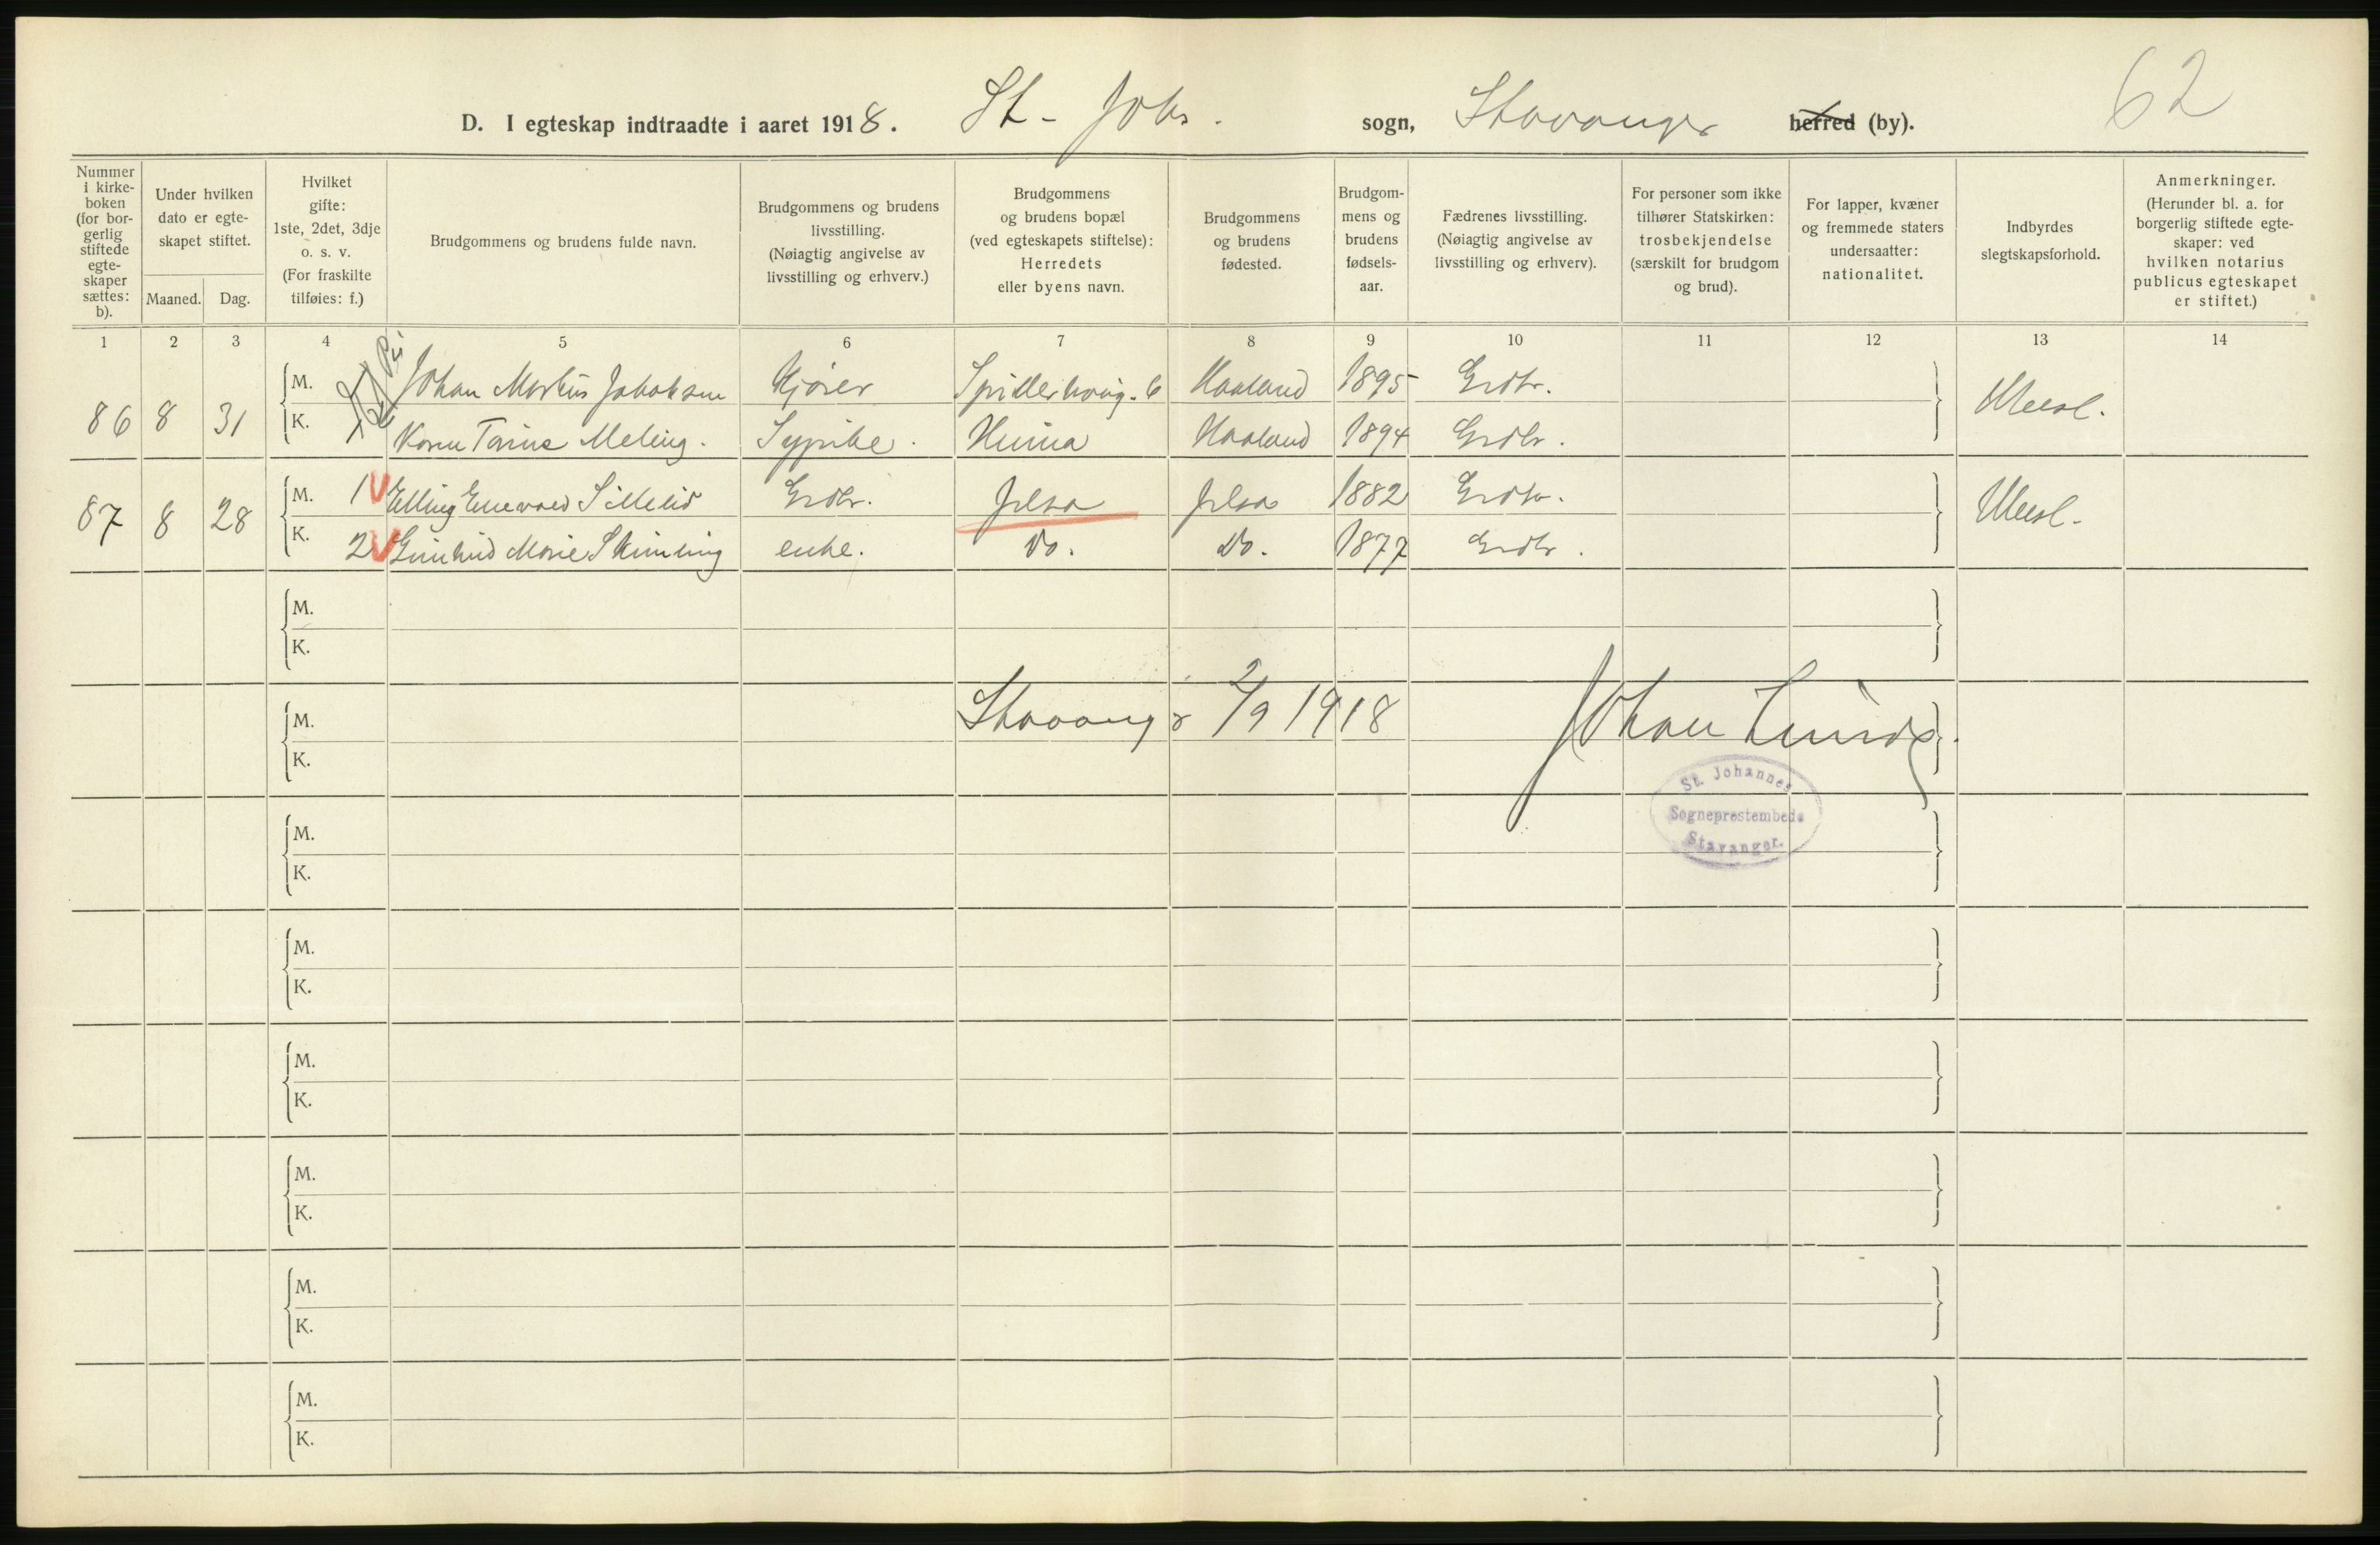 62
D. I egteskap indtraadte i aaret 1918. St. Johs. sogn, Stavanger herred (by).
Nummer i kirkeboken (for borgerlig stiftede egteskaper sættes: b).
Under hvilken dato er egteskapet stiftet.
Maaned. Dag.
Hvilket gifte: 1ste, 2det, 3dje o. s. v. (For fraskilte tilføies: f.)
Brudgommens og brudens fulde navn.
Brudgommens og brudens livsstilling. (Nøiagtig angivelse av livsstilling og erhverv.)
Brudgommens og brudens bopæl (ved egteskapets stiftelse): Herredets eller byens navn.
Brudgommens og brudens fødested.
Brudgommens og brudens fødselsaar.
Fædrenes livsstilling. (Nøiagtig angivelse av livsstilling og erhverv).
For personer som ikke tilhører Statskirken: trosbekjendelse (særskilt for brudgom og brud).
For lapper, kvæner og fremmede staters undersaatter: nationalitet.
Indbyrdes slegtskapsforhold.
Anmerkninger. (Herunder bl. a. for borgerlig stiftede egteskaper: ved hvilken notarius publicus egteskapet er stiftet.)
1 2 3 4 5 6 7 8 9 10 11 12 13 14
86 8 31
M. Johan Martin Jakobsen Kjører 6 Haaland 1895 Grdbr.
K. Karen Meling. Sypike. Haaland 1894 Grdbr.
Ubesl.
87 8 28
M. 1 Elling Enevald Grdbr. Jelsa Jelsa 1882 Grdbr.
K. 2 Marie enke. Do. Do. 1877 Grdbr.
Ubesl.
M.
K.
M. Stavanger 2/9 1918 Johan Lunde.
K.
St. Johannes
Sogneprestembede
Stavanger.
M.
K.
M.
K.
M.
K.
M.
K.
M.
K.
M.
K.